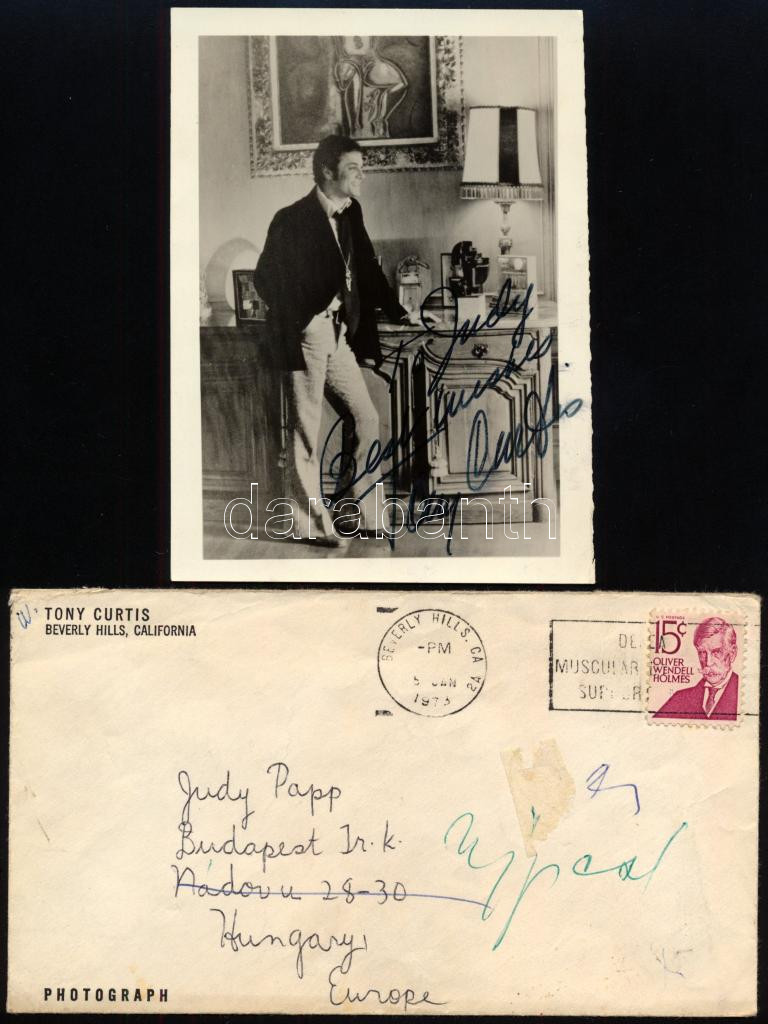 To Judy
Best wishes
Tony Curtis
darabanth
TONY CURTIS
BEVERLY HILLS, CALIFORNIA
BEVERLY HILLS, CA
-PM
5 JAN
1973
MUSCULAR
15¢
OLIVER
WENDELL
HOLMES
Judy Papp
Budapest Ir. k.
Nádor u 28-30
Hungary,
Europe
PHOTOGRAPH